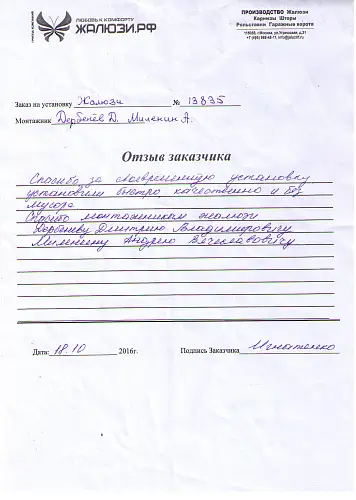 ЛЮБОВЬ К КОМФОРТУ
ЖАЛЮЗИ.РФ
ПРОИЗВОДСТВО Жалюзи
Карнизы Шторы
Рольставни Гаражные ворота
Заказ на установку Жалюзи № 13835
Монтажник Дербенёв Д. Миленин А.
Отзыв заказчика
Спасибо за своевременную установку
установили быстро качественно и без
мусора
Спасибо монтажникам жалюзи
Дербеневу Дмитрию Владимировичу
Миленину Андрею Вячеславовичу
Дата: 18.10 2016г. Подпись Заказчика